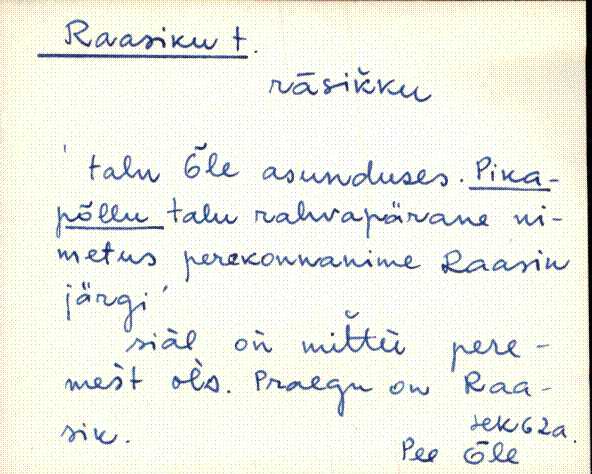 Raasiku t.
rāsikku
' talu Õle asunduses. Pika-
põllu talu rahvapärane ni-
metus perekonnanime Raasik
järgi '
siäl on mittu pere-
mest ols. Praegu on Raa-
sik.
sek 62a.
Pee Õle